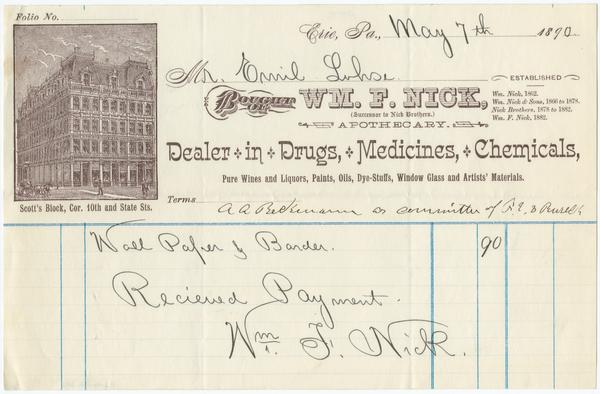 Folio No.
Erie, Pa., May 7th 1890
Mr. Emil Lohse
ESTABLISHED
Wm. Nick, 1862.
Wm. Nick & Sons, 1866 to 1878.
Nick Brothers, 1878 to 1882.
Wm. F. Nick, 1882.
BOUGHT OF WM. F. NICK,
(Successor to Nick Brothers.)
APOTHECARY.
Dealer in Drugs, Medicines, Chemicals,
Pure Wines and Liquors, Paints, Oils, Dye-Stuffs, Window Glass and Artists' Materials.
Scott's Block, Cor. 10th and State Sts.
Terms A A Beckmann as committee of
Wall Paper & Border. 90
Recieved Payment.
Wm. F. Nick.